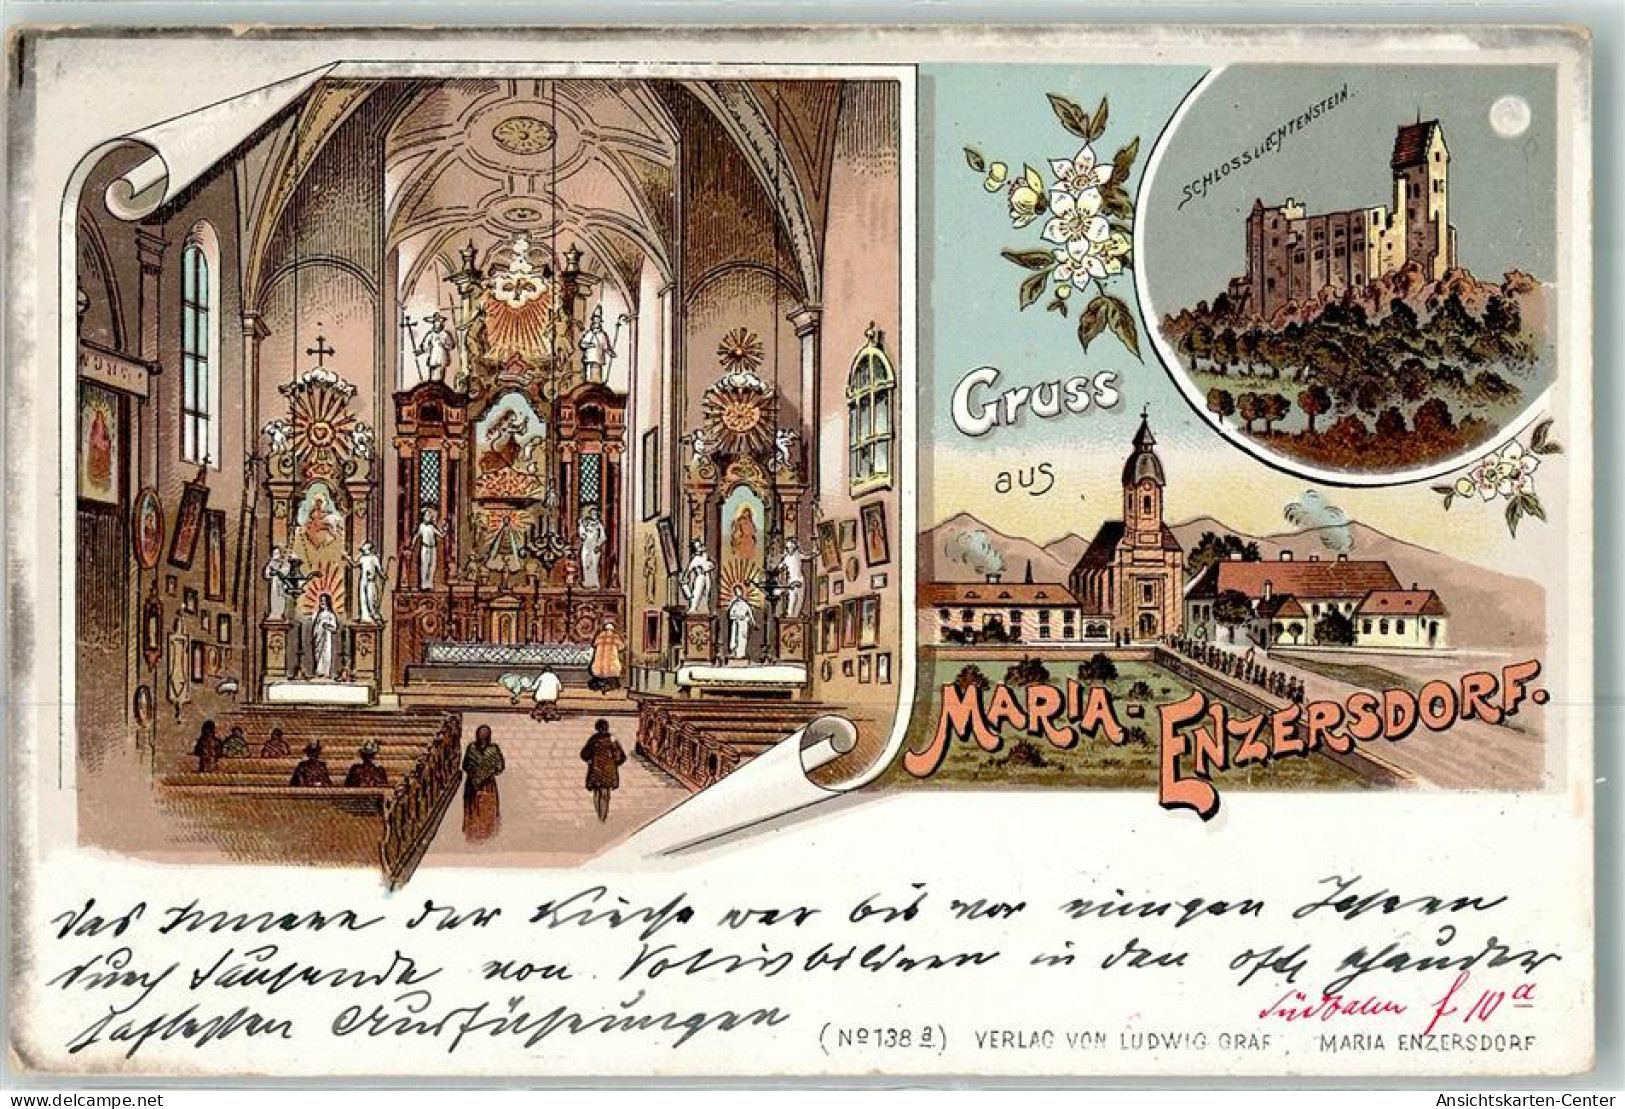 SCHLOSS LIECHTENSTEIN.
Gruss
aus
MARIA-ENZERSDORF.
Das Innere der Kirche war bis vor einigen Jahren
durch Tausende von Votivbildern in den oft
Ausführungen
Südbahn f 10 a
(No 138 a) VERLAG VON LUDWIG GRAF, MARIA ENZERSDORF
delcampe.net
Ansichtskarten-Center